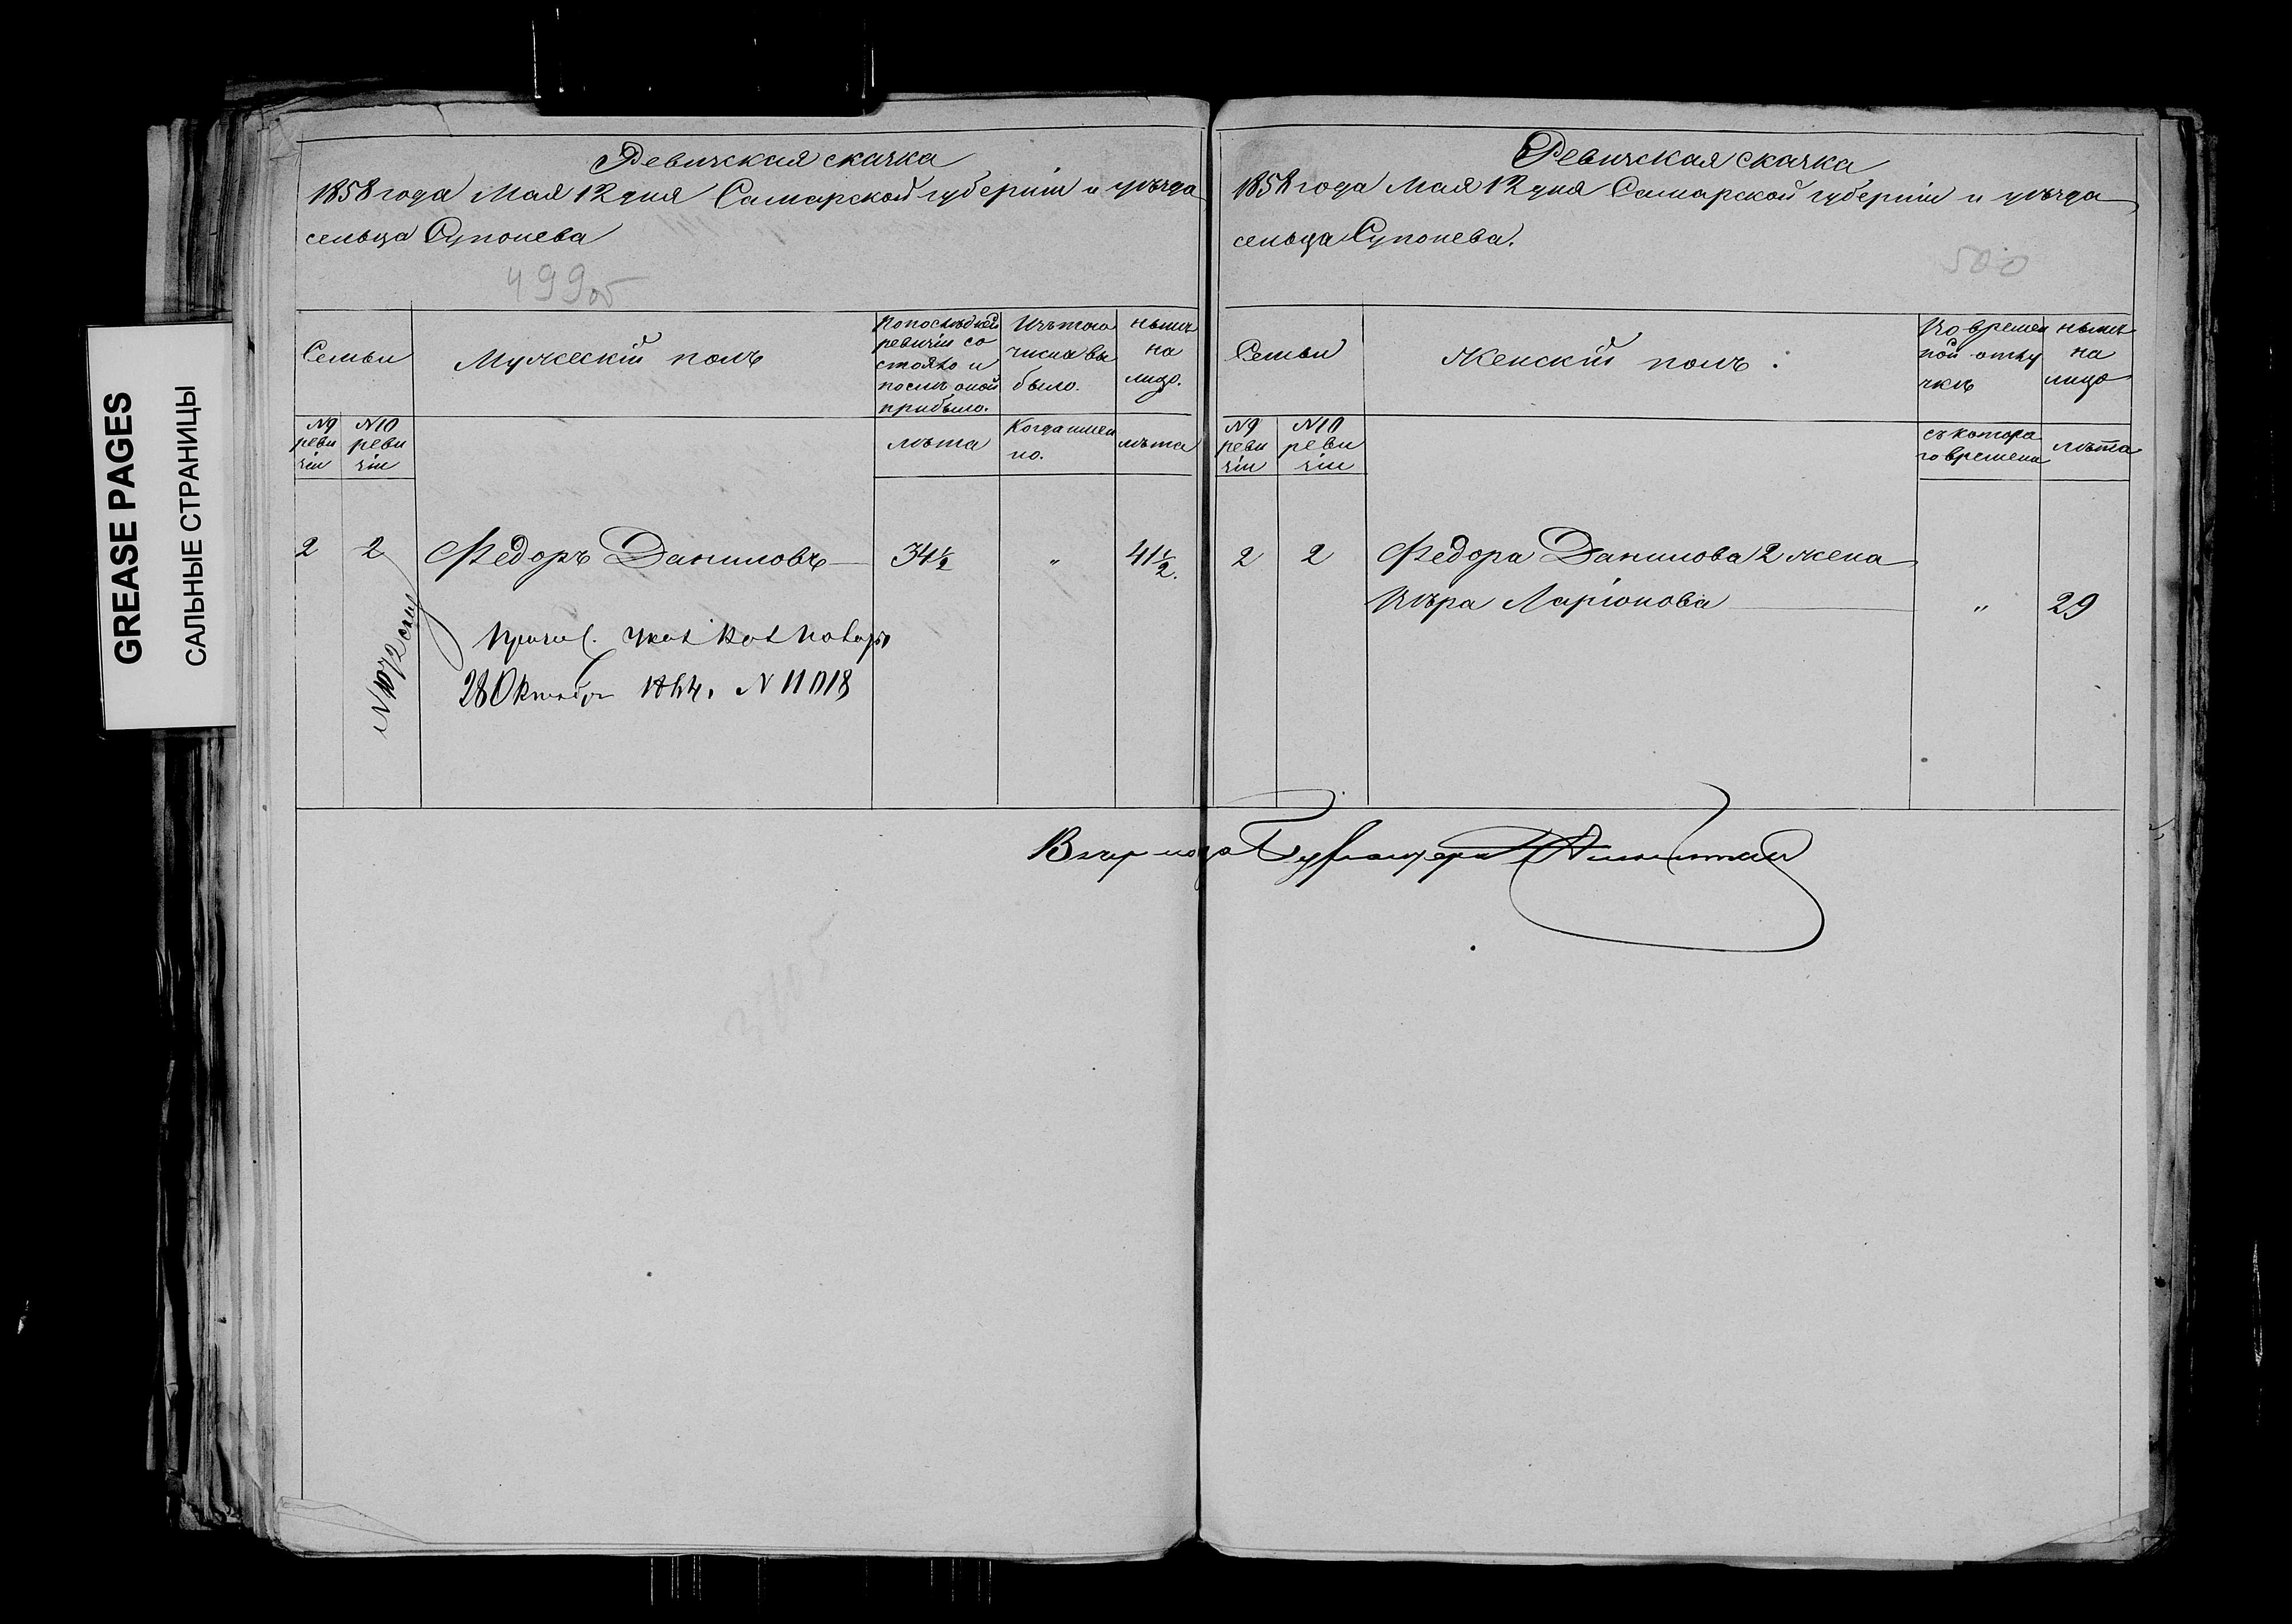 GREASE PAGES
САЛЬНЫЕ СТРАНИЦЫ
Ревизская сказка
1858 года Мая 12 дня Самарской губерніи и уѣзда
сельца Супонева
499об
Семьи
Мужескій полъ
По послѣдней
ревизіи со
стояло и
послѣ оной
прибыло.
Изъ того
числа вы
было.
Нынѣ
на
лицо.
№9
реви
зіи
№10
реви
зіи
лѣта
Когда имен
но.
лѣта
2 2 Федоръ Даниловъ 34½ " 41½.
№ 1072
28 Октября № 11018
Ревизская сказка
1858 года Мая 12 дня Самарской губерніи и уѣзда
сельца Супонева.
500
Семьи
Женскій полъ.
Во времен
ной отлу
чкѣ
Нынѣ
на
лицо
№9
реви
зіи
№10
реви
зіи
съ котора
го времени
лѣта
2 2 Федора Данилова 2 жена
Вѣра Ларіонова " 29